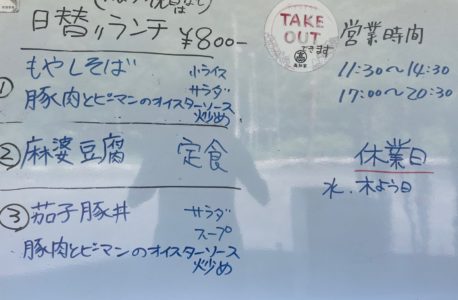 日替りランチ ¥800-
① もやしそば 小ライス
サラダ
豚肉とピーマンのオイスターソース
炒め
② 麻婆豆腐 定食
③ 茄子豚丼 サラダ
スープ
豚肉とピーマンのオイスターソース
炒め
TAKE
OUT
できます
営業時間
11:30～14:30
17:00～20:30
休業日
水、木よう日